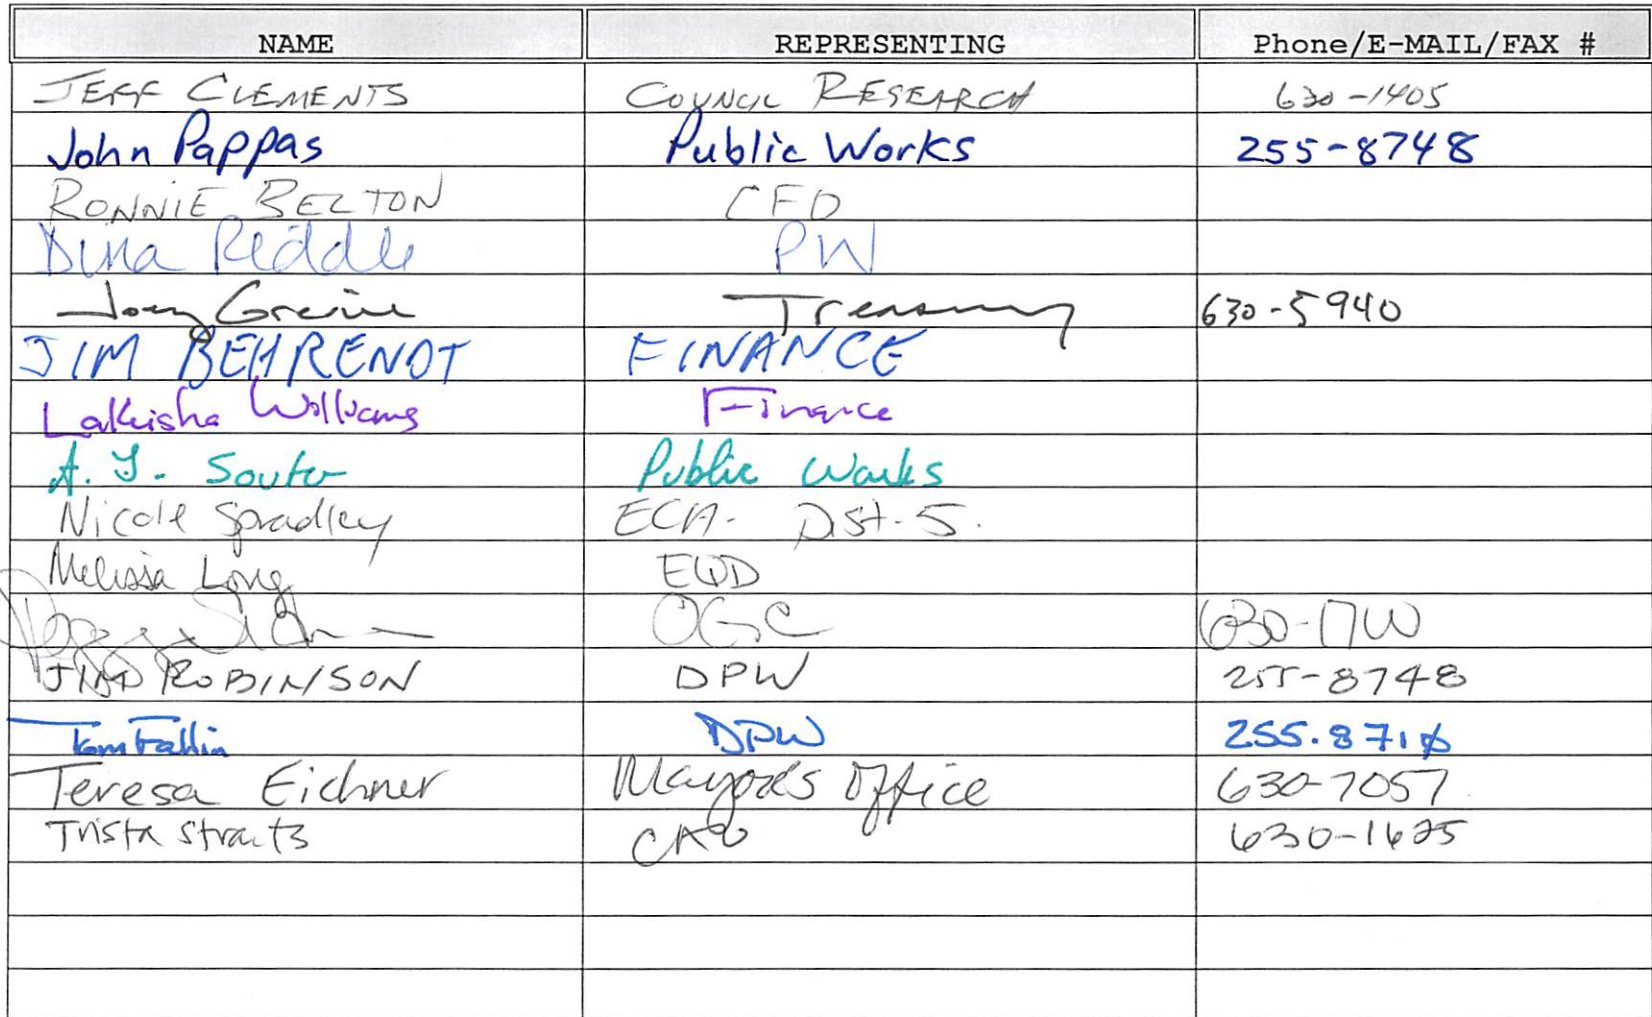 NAME REPRESENTING Phone/E-MAIL/FAX #
JEFF CLEMENTS COUNCIL RESEARCH 630-1405
John Pappas Public Works 255-8748
RONNIE BELTON CFO
Dina Riddle PW
Joey Greive Treasury 630-5940
JIM BEHRENDT FINANCE
Lakeisha Williams Finance
A. J. Souto Public Works
Nicole Spradley ECA- Dist-5.
Melissa Long EWD
OGC
JIM ROBINSON DPW 255-8748
Tom Fallin DPW 255.8710
Teresa Eichner Mayor's Office 630-7057
Trista Straits CAO 630-1625